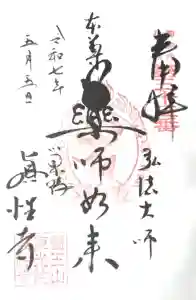 奉拝
弘法大師
本尊
薬師如来
令和七年
五月五日
眞性寺